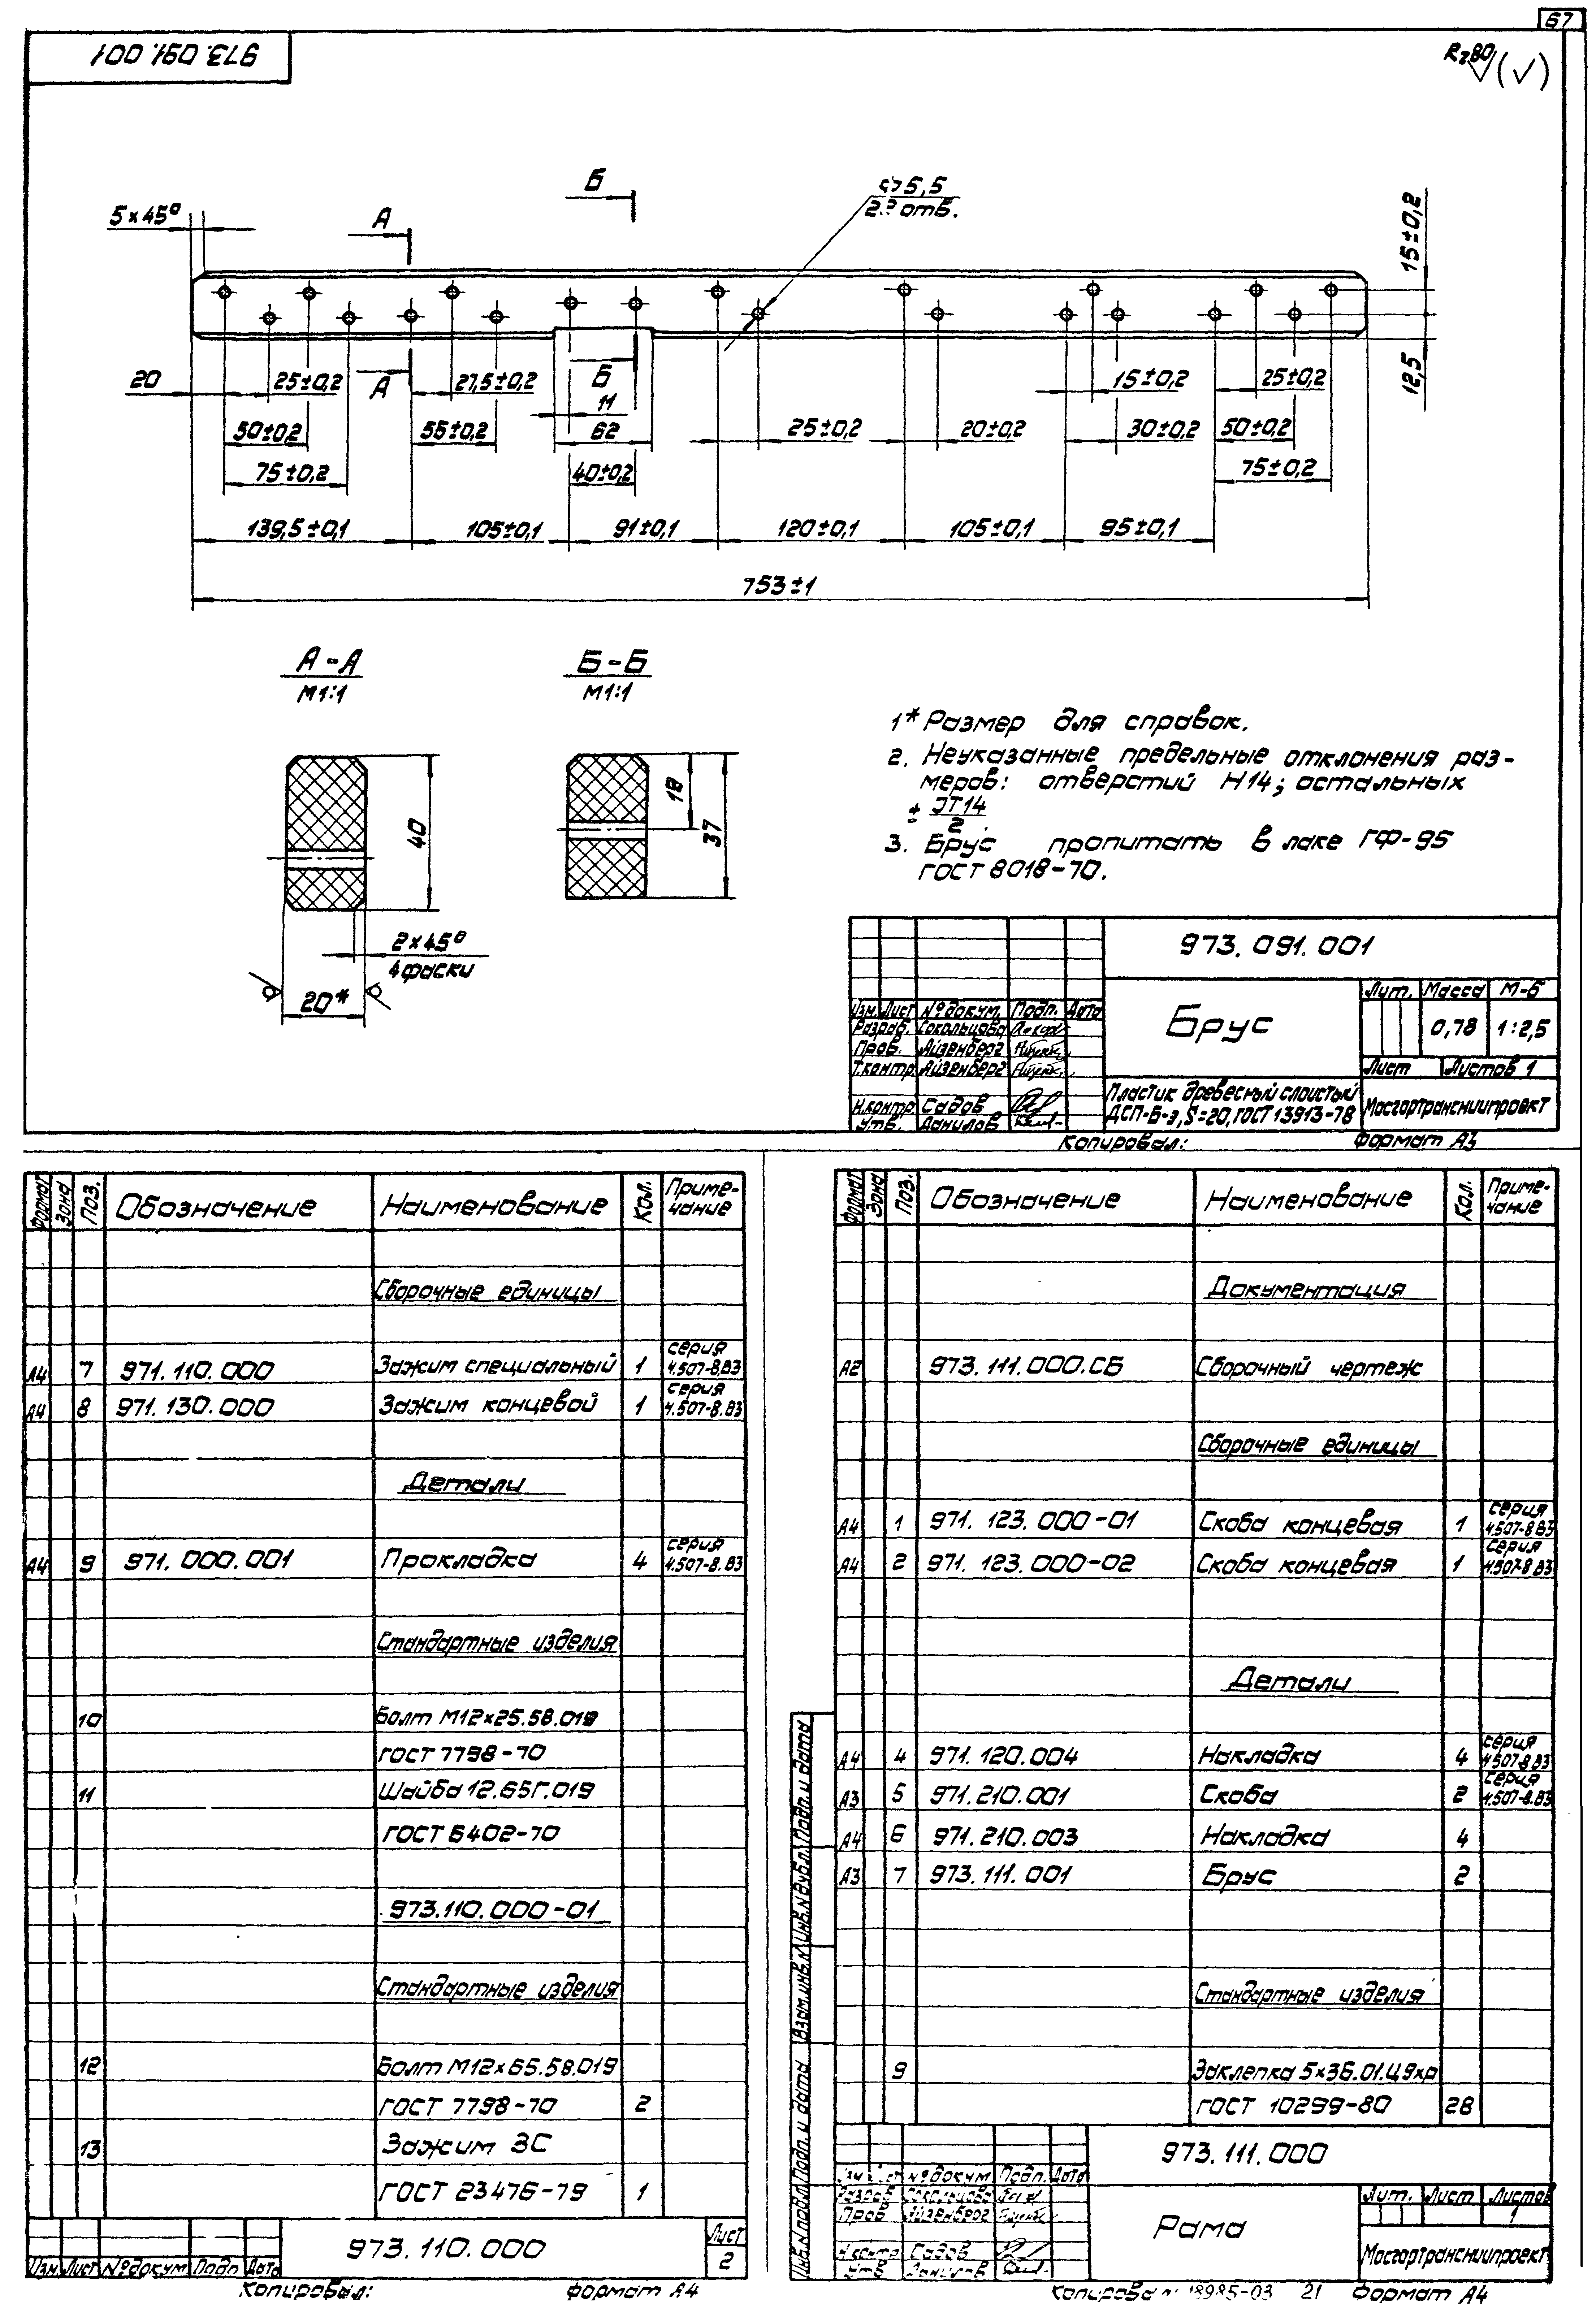 67
973.091.001
Rz80 (√)
5×45°
А
Б
⌀5,5
отв.
15±0,2
12,5
20
25±0,2
А
27,5±0,2
Б
11
15±0,2
25±0,2
50±0,2
55±0,2
62
25±0,2
20±0,2
30±0,2
50±0,2
75±0,2
40±0,2
75±0,2
139,5±0,1
105±0,1
91±0,1
120±0,1
105±0,1
95±0,1
753±1
А-А
М1:1
Б-Б
М1:1
40
18
37
2×45°
4 фаски
20*
1* Размер для справок.
2. Неуказанные предельные отклонения раз-
меров: отверстий Н14; остальных
± IT14
2.
3. Брус пропитать в лаке ГФ-95
ГОСТ 8018-70.
973.091.001
Брус
Лит. Масса М-б
0,78 1:2,5
Лист Листов 1
Изм. Лист № докум. Подп. Дата
Разраб. Сокольцова
Пров. Айзенберг
Т.контр. Айзенберг
Н.контр. Садов
Утв. Данилов
Пластик древесный слоистый
ДСП-Б-э, S=20, ГОСТ 13913-78
Мосгортрансниипроект
Копировал: Формат А3
Формат Зона Поз. Обозначение Наименование Кол. Приме-
чание
Сборочные единицы
А4 7 971.110.000 Зажим специальный 1 серия
4.507-8.В3
А4 8 971.130.000 Зажим концевой 1 серия
4.507-8.В3
Детали
А4 9 971.000.001 Прокладка 4 серия
4.507-8.В3
Стандартные изделия
10 Болт М12×25.58.019
ГОСТ 7798-70
11 Шайба 12.65Г.019
ГОСТ 6402-70
973.110.000-01
Стандартные изделия
12 Болт М12×65.58.019
ГОСТ 7798-70 2
13 Зажим ЗС
ГОСТ 23476-79 1
Изм. Лист № докум Подп Дата
973.110.000
Лист
2
Копировал: формат А4
Формат Зона Поз. Обозначение Наименование Кол. Приме-
чание
Документация
А2 973.111.000.СБ Сборочный чертеж
Сборочные единицы
А4 1 971.123.000-01 Скоба концевая 1 серия
4.507-8.В3
А4 2 971.123.000-02 Скоба концевая 1 серия
4.507-8.В3
Детали
А4 4 971.120.004 Накладка 4 серия
4.507-8.В3
А3 5 971.210.001 Скоба 2 серия
4.507-8.В3
А4 6 971.210.003 Накладка 4
А3 7 973.111.001 Брус 2
Стандартные изделия
9 Заклепка 5×36.01.Ц9хр
ГОСТ 10299-80 28
Инв.№подл. Подп. и дата Взам.инв.№ Инв.№дубл. Подп. и дата
973.111.000
Изм Лист № докум Подп. Дата
Разраб Сокольцова
Пров Айзенберг
Н.контр Садов
Утв Данилов
Рама
Лит. Лист Листов
1
Мосгортрансниипроект
Копировал: 18985-03 21 Формат А4